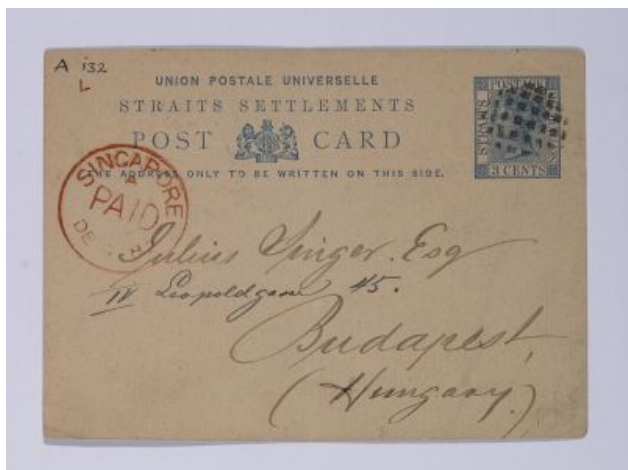 A 132
L
UNION POSTALE UNIVERSELLE
STRAITS SETTLEMENTS
POST CARD
THE ADDRESS ONLY TO BE WRITTEN ON THIS SIDE.
POSTAGE
STRAITS
3 CENTS
SINGAPORE
A
PAID
DE
Julius Singer. Esq
IV Leopoldgasse 45.
Budapest,
(Hungary.)